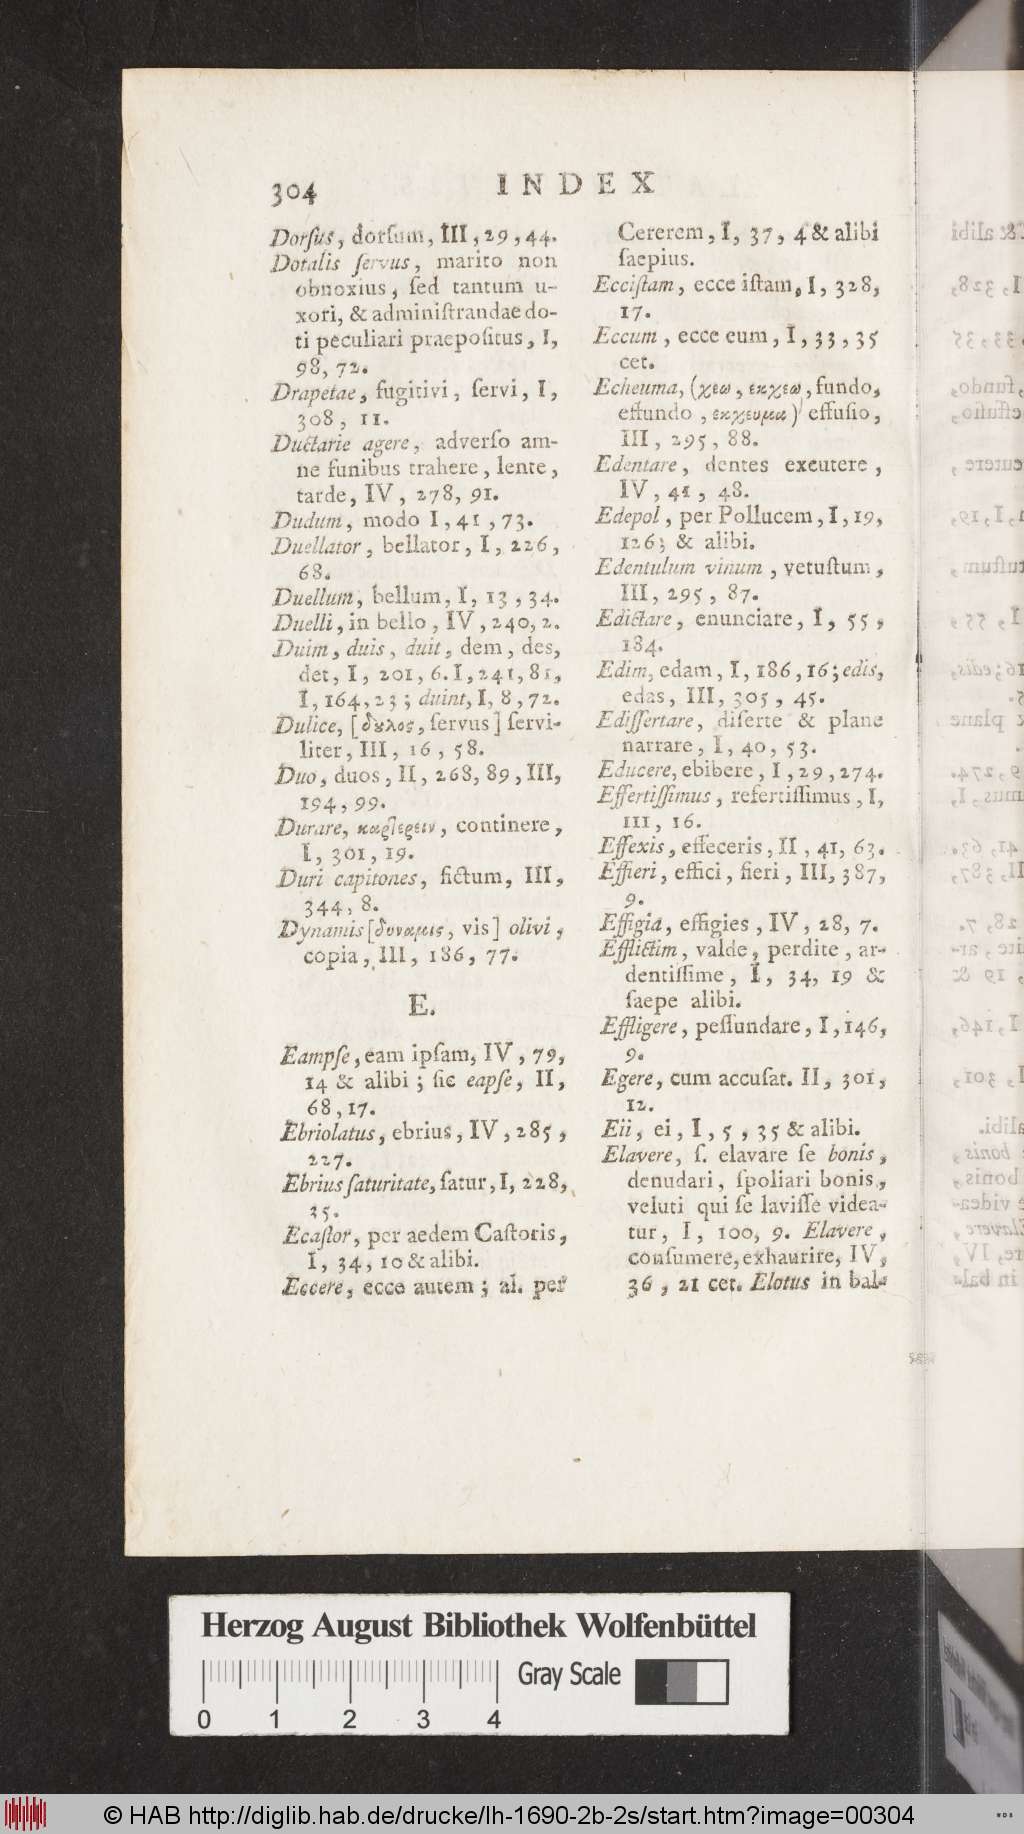 304
INDEX
Dorſus, dorſum, III, 29, 44.
Dotalis ſervus, marito non
obnoxius, ſed tantum u-
xori, & adminiſtrandae do-
ti peculiari praepoſitus, I,
98, 72.
Drapetae, fugitivi, ſervi, I,
308, 11.
Ductarie agere, adverſo am-
ne funibus trahere, lente,
tarde, IV, 278, 91.
Dudum, modo I, 41, 73.
Duellator, bellator, I, 226,
68.
Duellum, bellum, I, 13, 34.
Duelli, in bello, IV, 240, 2.
Duim, duis, duit, dem, des,
det, I, 201, 6. I, 241, 81,
I, 164, 23; duint, I, 8, 72.
Dulice, [δȣλος, ſervus] ſervi-
liter, III, 16, 58.
Duo, duos, II, 268, 89, III,
194, 99.
Durare, καρτερειν, continere,
I, 301, 19.
Duri capitones, fictum, III,
344, 8.
Dynamis [δυναμις, vis] olivi,
copia, III, 186, 77.
E.
Eampſe, eam ipſam, IV, 79,
14 & alibi; ſic eapſe, II,
68, 17.
Ebriolatus, ebrius, IV, 285,
227.
Ebrius ſaturitate, ſatur, I, 228,
35.
Ecaſtor, per aedem Caſtoris,
I, 34, 10 & alibi.
Eccere, ecce autem; al. per
Cererem, I, 37, 4 & alibi
ſaepius.
Ecciſtam, ecce iſtam, I, 328,
17.
Eccum, ecce eum, I, 33, 35
cet.
Echeuma, (χεω, εκχεω, fundo,
effundo, εκχευμα) effuſio,
III, 295, 88.
Edentare, dentes excutere,
IV, 41, 48.
Edepol, per Pollucem, I, 19,
126; & alibi.
Edentulum vinum, vetuſtum,
III, 295, 87.
Edictare, enunciare, I, 55,
184.
Edim, edam, I, 186, 16; edis,
edas, III, 305, 45.
Ediſſertare, diſerte & plane
narrare, I, 40, 53.
Educere, ebibere, I, 29, 274.
Effertiſſimus, refertiſſimus, I,
111, 16.
Effexis, effeceris, II, 41, 63.
Effieri, effici, fieri, III, 387,
9.
Effigia, effigies, IV, 28, 7.
Efflictim, valde, perdite, ar-
dentiſſime, I, 34, 19 &
ſaepe alibi.
Effligere, peſſundare, I, 146,
9.
Egere, cum accuſat. II, 301,
12.
Eii, ei, I, 5, 35 & alibi.
Elavere, ſ. elavare ſe bonis,
denudari, ſpoliari bonis,
veluti qui ſe laviſſe videa-
tur, I, 100, 9. Elavere,
conſumere, exhaurire, IV,
36, 21 cet. Elotus in bal-
Herzog August Bibliothek Wolfenbüttel
Gray Scale
0 1 2 3 4
© HAB http://diglib.hab.de/drucke/lh-1690-2b-2s/start.htm?image=00304